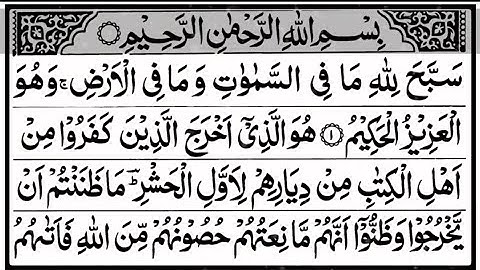 بِسْمِ اللهِ الرَّحْمٰنِ الرَّحِيْمِ
سَبَّحَ لِلّٰهِ مَا فِى السَّمٰوٰتِ وَمَا فِى الْاَرْضِ ۚ وَهُوَ
الْعَزِيْزُ الْحَكِيْمُ ۝۱ هُوَ الَّذِىْۤ اَخْرَجَ الَّذِيْنَ كَفَرُوْا مِنْ
اَهْلِ الْكِتٰبِ مِنْ دِيَارِهِمْ لِاَوَّلِ الْحَشْرِ ؕ مَا ظَنَنْتُمْ اَنْ
يَّخْرُجُوْا وَظَنُّوْۤا اَنَّهُمْ مَّانِعَتُهُمْ حُصُوْنُهُمْ مِّنَ اللهِ فَاَتٰىهُمُ